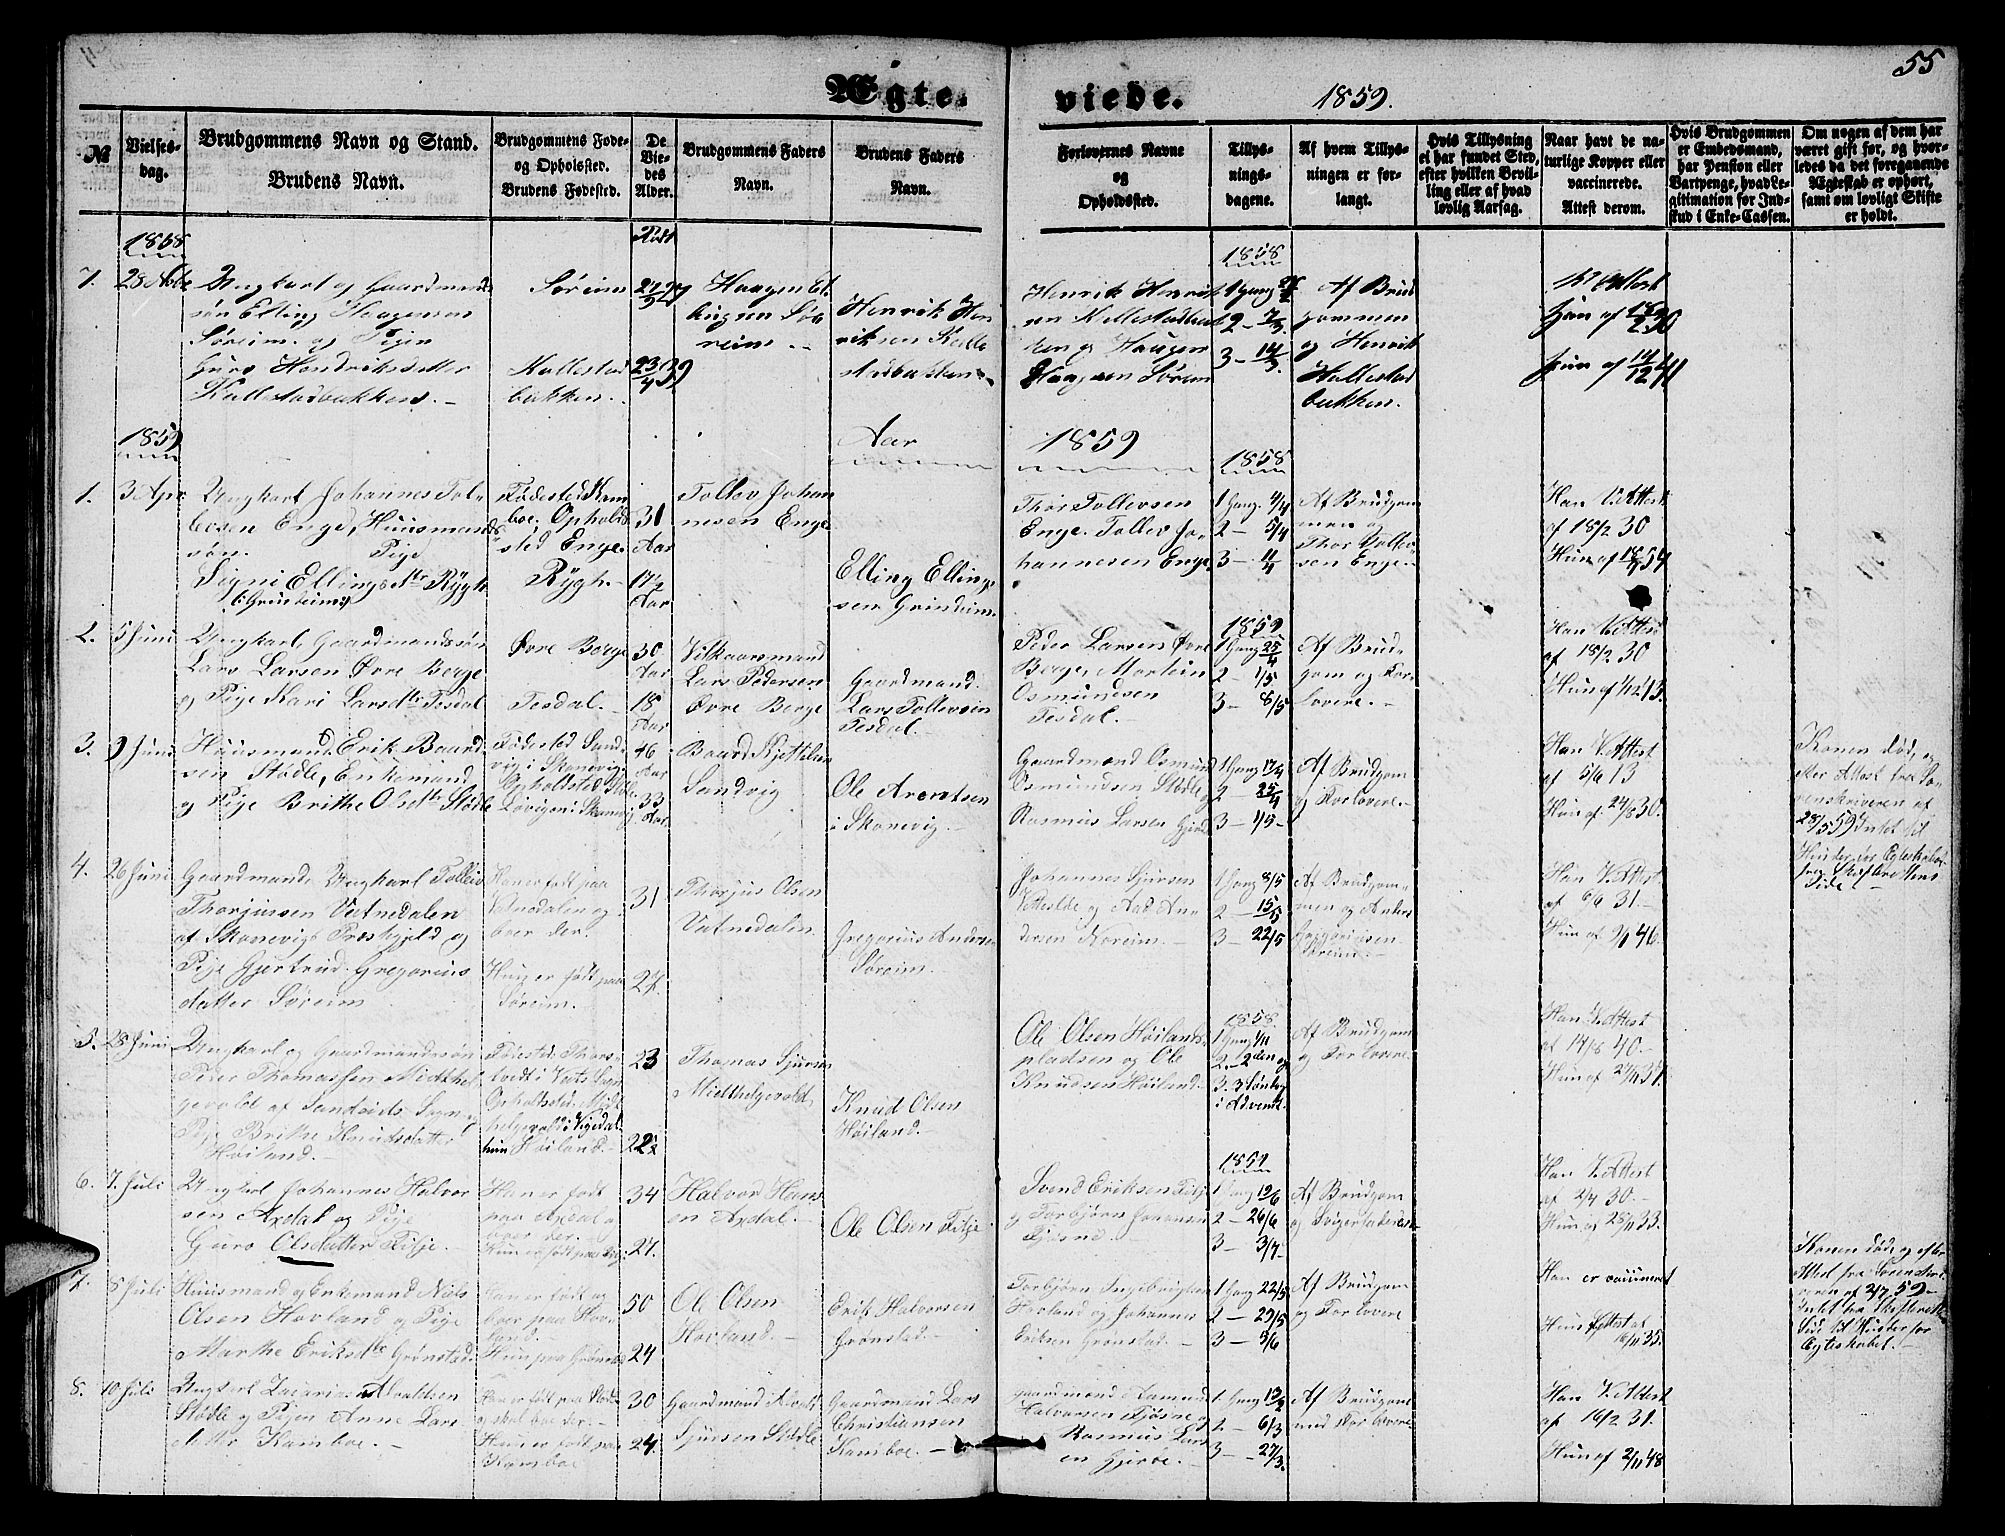 55
Ægte.
viede.
1859.
№
Vielses-
dag.
Brudgommens Navn og Stand.
Brudens Navn.
Brudgommens Føde-
og Opholdssted.
Brudens Fødested.
De
Vie-
des
Alder.
Brudgommens Faders
Navn.
Brudens Faders
Navn.
Forlovernes Navne
og
Opholdssted.
Tillys-
nings-
dagene.
Af hvem Tillys-
ningen er for-
langt.
Hvis Tillysning
ei har fundet Sted,
efter hvilken Bevil-
ling eller af hvad
lovlig Aarsag.
Naar havt de na-
turlige Kopper eller
vaccinerede.
Attest derom.
Hvis Brudgommen
er Embedsmand,
har Pension eller
Vartpenge, hvad Le-
gitimation for Ind-
skud i Enke-Cassen.
Om nogen af dem har
været gift før, og hvor-
ledes da det foregaaende
Ægteskab er ophørt,
samt om lovligt Skifte
er holdt.
1858
7.
Ungkarl og Gaardmands
søn Elling Haagensen
Søreim og Pigen
Guro Hendriksdatter
Kallestadbakken.
Søreim
Kallestad
bakken.
Haagen El-
lingsen Sø-
reim
Henrik Hen
riksen Kalle
stadbakken
Henrik Henrik
sen Kallestadbak
ken og Haagen
Søreim
1858
1 Gang
2 - 7/3
3 - 14/3
Af Brud
gommen
og Henrik
Kallestad
bakken.
1859
Aar
1859
1858
1.
3 Apr
Ungkarl Johannes Tol-
levsen Enge, Huusmands
søn. Pige
Signi Ellingsdtr Rygh
(: Grindheim :)
Fødested Kam
boe, Opholds
sted Enge.
Rygh.
31
Aar
17½
Aar
Tollev Johan
nesen Enge
Elling Elling
sen Grindeim.
Thor Tollevsen
Enge. Tollev Jo-
hannesen Enge
1 Gang 4/4
2 - 5/4
3 - 11/4
Af Brudgom
men og
Thor Tollev
sen Enge.
Han V. Attest
af 18/2 30
Hun af 18/9 54
2.
5 Juni
Ungkarl Gaardmandssøn
Lars Larsen Øvre Berge
og Pige Kari Larsdtr Tesdal
Øvre Berge
Tesdal.
30
Aar
18
Aar
Vilkaarsmand
Lars Pedersen
Øvre Berge
Gaardmand
Lars Tollevsen
Tesdal.
Peder Larsen Øvre
Berge, Mortein
Osmundsen
Tesdal.
1859
1 Gang 25/4
2 - 1/5
3 - 8/5
Af Brud-
gom og For-
lovere.
Han V. Attest
af 18/2 30
3.
9 Juni
Huusmand Erik Baard
sen Stødle, Enkemand
og Pige Brithe Olsdtr Stødle
Fødested Sand-
vig i Skonevig
Opholdssted Stødle
i Skonevig
46
Aar
33
Aar
Baard Kjettilsen
Sandvig
Ole Arentsen
i Skonevig.
Gaardmand Osmund
Osmundsen Stødle og
Rasmus Larsen Gjerde
1 Gang 17/4
2 - 25/4
3 - 1/5
Af Brudgom
og Forlovere.
Han V. Attest
af 5/6 13
Hun af 24/8 30.
Konen død, og
efter Attest fra So-
renskriveren af
28/5 59 Intet til
Hinder for Egteskabet
fra Skifterettens
Side
4.
26 Juni
Gaardmand, Ungkarl Tolleiv
Thorjusen Vatnedalen
af Skonevigs Præstegjeld og
Pige Gjertrud Gregorius
datter Søreim
Han er født paa
Vatnedalen og
boer der.
Hun er født paa
Søreim.
31
Thorjus Olsen
Vatnedalen
Gregorius Andersen
Søreim.
Johannes Sjursen
og Aad An-
dersen Noreim.
1 Gang 8/5
2 - 15/5
3 - 22/5
Af Brudgom-
men og Anders
Gregoriussen
Søreim.
Han V. Attest
af 6/6 31.
Hun af 9/1 46.
5.
28 Juni
Ungkarl og Gaardmandssøn
Peder Thomassen Midthel
gevold af Sandeids Sogn og
Pige Brithe Knudsdatter
Høiland.
Fødested Thors-
tvedt i Vats Sogn
Opholdssted Midt
helgevold i Vigedal
hun Høiland.
23
22½
Thomas Sjursen
Midthelgevold
Knud Olsen
Høiland.
Ole Olsen Høilands
pladsen og Ole
Knudsen Høiland.
1858
1 Gang 1/11
2 - 2den og
3. 3 Søndag
i Advent.
Af Brudgom
og Forlovere.
Han V. Attest
af 14/8 40.
Hun af 27/11 37.
6.
7. Juli
Ungkarl Johannes Halvor
sen Axdal og Pige
Guro Olsdatter Fitje.
Han er født
paa Axdal og
boer der.
Hun er født paa Fitje
34
27.
Halvor Hans
en Axdal.
Ole Olsen Fitje
Svend Eriksen Fitje
og Torbjørn Johannsen
Fjøsne.
1859
1 Gang 19/6
2 - 26/6
3 - 3/7
Af Brudgom
og Svigerfaderen
Han V. Attest
af 2/7 30.
Hun af 25/11 33.
7.
8 Juli
Huusmand og Enkemand Nils
Olsen Hovland og Pige
Marthe Eriksdtr Grønstad.
Han er født og
boer paa Hov
land.
Hun paa Grønstad
50
24
Ole Olsen
Hovland.
Erik Halvorsen
Grønstad.
Torbjørn Ingebrigtsen
Hovland og Johannes
Eriksen Grønstad.
1 Gang 22/5
2 - 29/5
3 - 5/6
Af Brudgom
og Forlovere
Han er vaccineret
Hun Attest af
16/11 35.
Konen død, og efter
Attest fra Sorenskri-
veren af 2/7 59
Intet fra Skifterettens
Side til Hinder for
Egteskabet.
8.
10 Juli
Ungkarl Zacarias Alvaldsen
Stødle og Pigen Anne Lars
datter Kamboe.
Han er født paa Stødle
og skal boe der.
Hun er født paa
Kamboe
30
24.
Gaardmand Alvald
Sjursen Stødle
Gaardmand Lars
Christiansen
Kamboe.
Gaardmand Aamund
Halvorsen Fjøsne og
Rasmus Lars
en Gjerde.
1. Gang 13/2
2 - 6/3
3 - 27/3.
Af Brudgom
med Forlovere
Han V. Attest
af 16/2 31.
Hun af 2/11 48